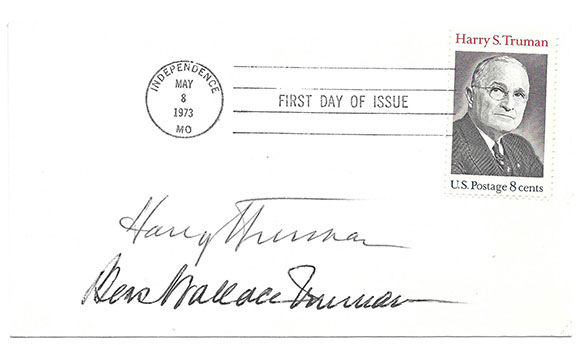 Harry S. Truman
INDEPENDENCE
MAY
8
1973
MO
FIRST DAY OF ISSUE
U.S. Postage 8 cents
Harry Truman
Bess Wallace Truman